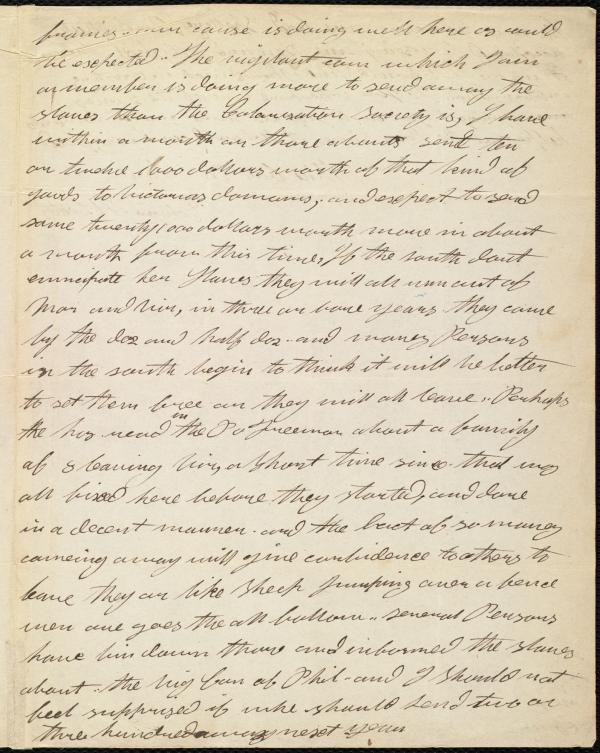 our cause is doing well here as could
be expected. The vigilant com which I am
a member is doing more to send away the
slaves than the Colonisation Society is, I have
within a month or thare abouts sent ten
or twelve 1000 dollars worth of that kind of
goods to Victorias domains, and expect to send
some twenty 1000 dollars worth more in about
a month from this time, If the south dont
emincipate her slaves they will all run out of
Mar and Vir, in three or fore years they come
by the doz and half doz- and maney Persons
in the south begin to think it will be better
to set them free or they will all leave.. Perhaps
the has read in the Pa Freeman about a family
of 8 leaving Vir, a short time since- that was
all fixed here before they started, and done
in a decent manner- and the fact of so maney
comeing away will give confidence to others to
leave they ar like sheep jumping over a fence
wen one goes the all follow.. several Persons
have bin down thare and informed the slaves
about- the vig Com of Phil- and I should not
feel supprised if whe should send two or
three hundred away next year